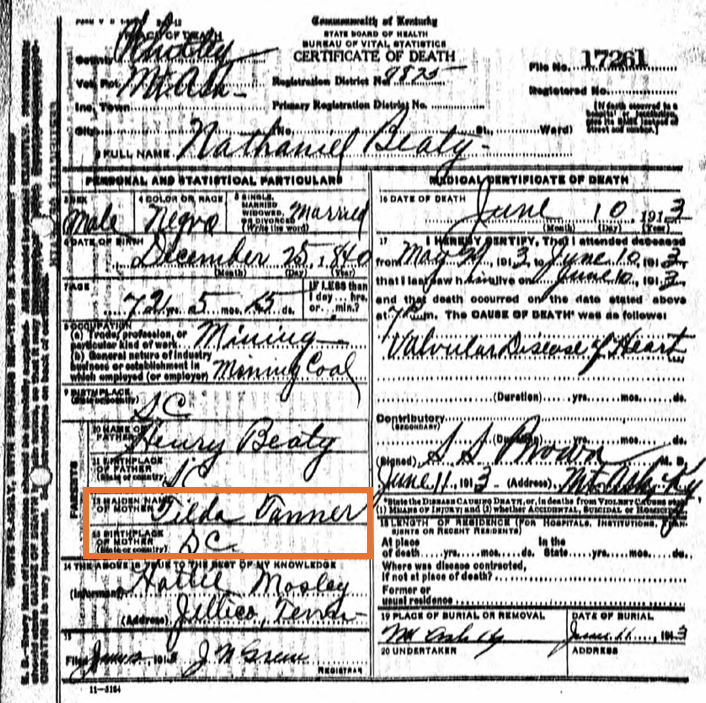 Commonwealth of Kentucky
STATE BOARD OF HEALTH
BUREAU OF VITAL STATISTICS
CERTIFICATE OF DEATH
PLACE OF DEATH
County Whitley
Vot. Pct. Mt Ash
Inc. Town
City No. St. Ward)
Registration District No. 9825
Primary Registration District No.
File No. 17261
Registered No.
[If death occurred in a hospital or institution, give its NAME instead of street and number.]
FULL NAME Nathaniel Beaty
PERSONAL AND STATISTICAL PARTICULARS
3 SEX Male
4 COLOR OR RACE Negro
5 SINGLE, MARRIED WIDOWED, OR DIVORCED (Write the word) Married
6 DATE OF BIRTH December 25, 1840
(Month) (Day) (Year)
7 AGE 72 yrs. 5 mos. 15 ds.
IF LESS than 1 day... hrs. or... min.?
8 OCCUPATION
(a) Trade, profession, or particular kind of work Mining
(b) General nature of industry business or establishment in which employed (or employer) Mining Coal
9 BIRTHPLACE (State or country) SC
PARENTS
10 NAME OF FATHER Henry Beaty
11 BIRTHPLACE OF FATHER (State or country) SC
12 MAIDEN NAME OF MOTHER Tilda Tanner
13 BIRTHPLACE OF MOTHER (State or country) SC
14 THE ABOVE IS TRUE TO THE BEST OF MY KNOWLEDGE
(Informant) Hattie Mosley
(Address) Jellico, Tenn
15
Filed 191 J N
REGISTRAR
11-3184
MEDICAL CERTIFICATE OF DEATH
16 DATE OF DEATH June 10 1913
(Month) (Day) (Year)
17 I HEREBY CERTIFY, That I attended deceased
from May 29 1913 to June 10 1913
that I last saw him alive on June 10, 1913
and that death occurred on the date stated above
at m. The CAUSE OF DEATH was as follows:
Valvular Disease of Heart
(Duration) yrs. mos. ds.
Contributory
(SECONDARY)
(Duration) yrs. mos. ds.
(Signed) S S Brown M. D.
June 11, 1913 (Address) Mt Ash, Ky
State the DISEASE CAUSING DEATH, or, in deaths from VIOLENT CAUSES state
(1) MEANS OF INJURY; and (2) whether ACCIDENTAL, SUICIDAL or HOMICIDAL
18 LENGTH OF RESIDENCE (FOR HOSPITALS, INSTITUTIONS, TRANSIENTS OR RECENT RESIDENTS)
At place of death yrs. mos. ds. In the State yrs. mos. ds.
Where was disease contracted,
if not at place of death?
Former or
usual residence
19 PLACE OF BURIAL OR REMOVAL
Mt Ash Ky
DATE OF BURIAL
June 11, 1913
20 UNDERTAKER
ADDRESS